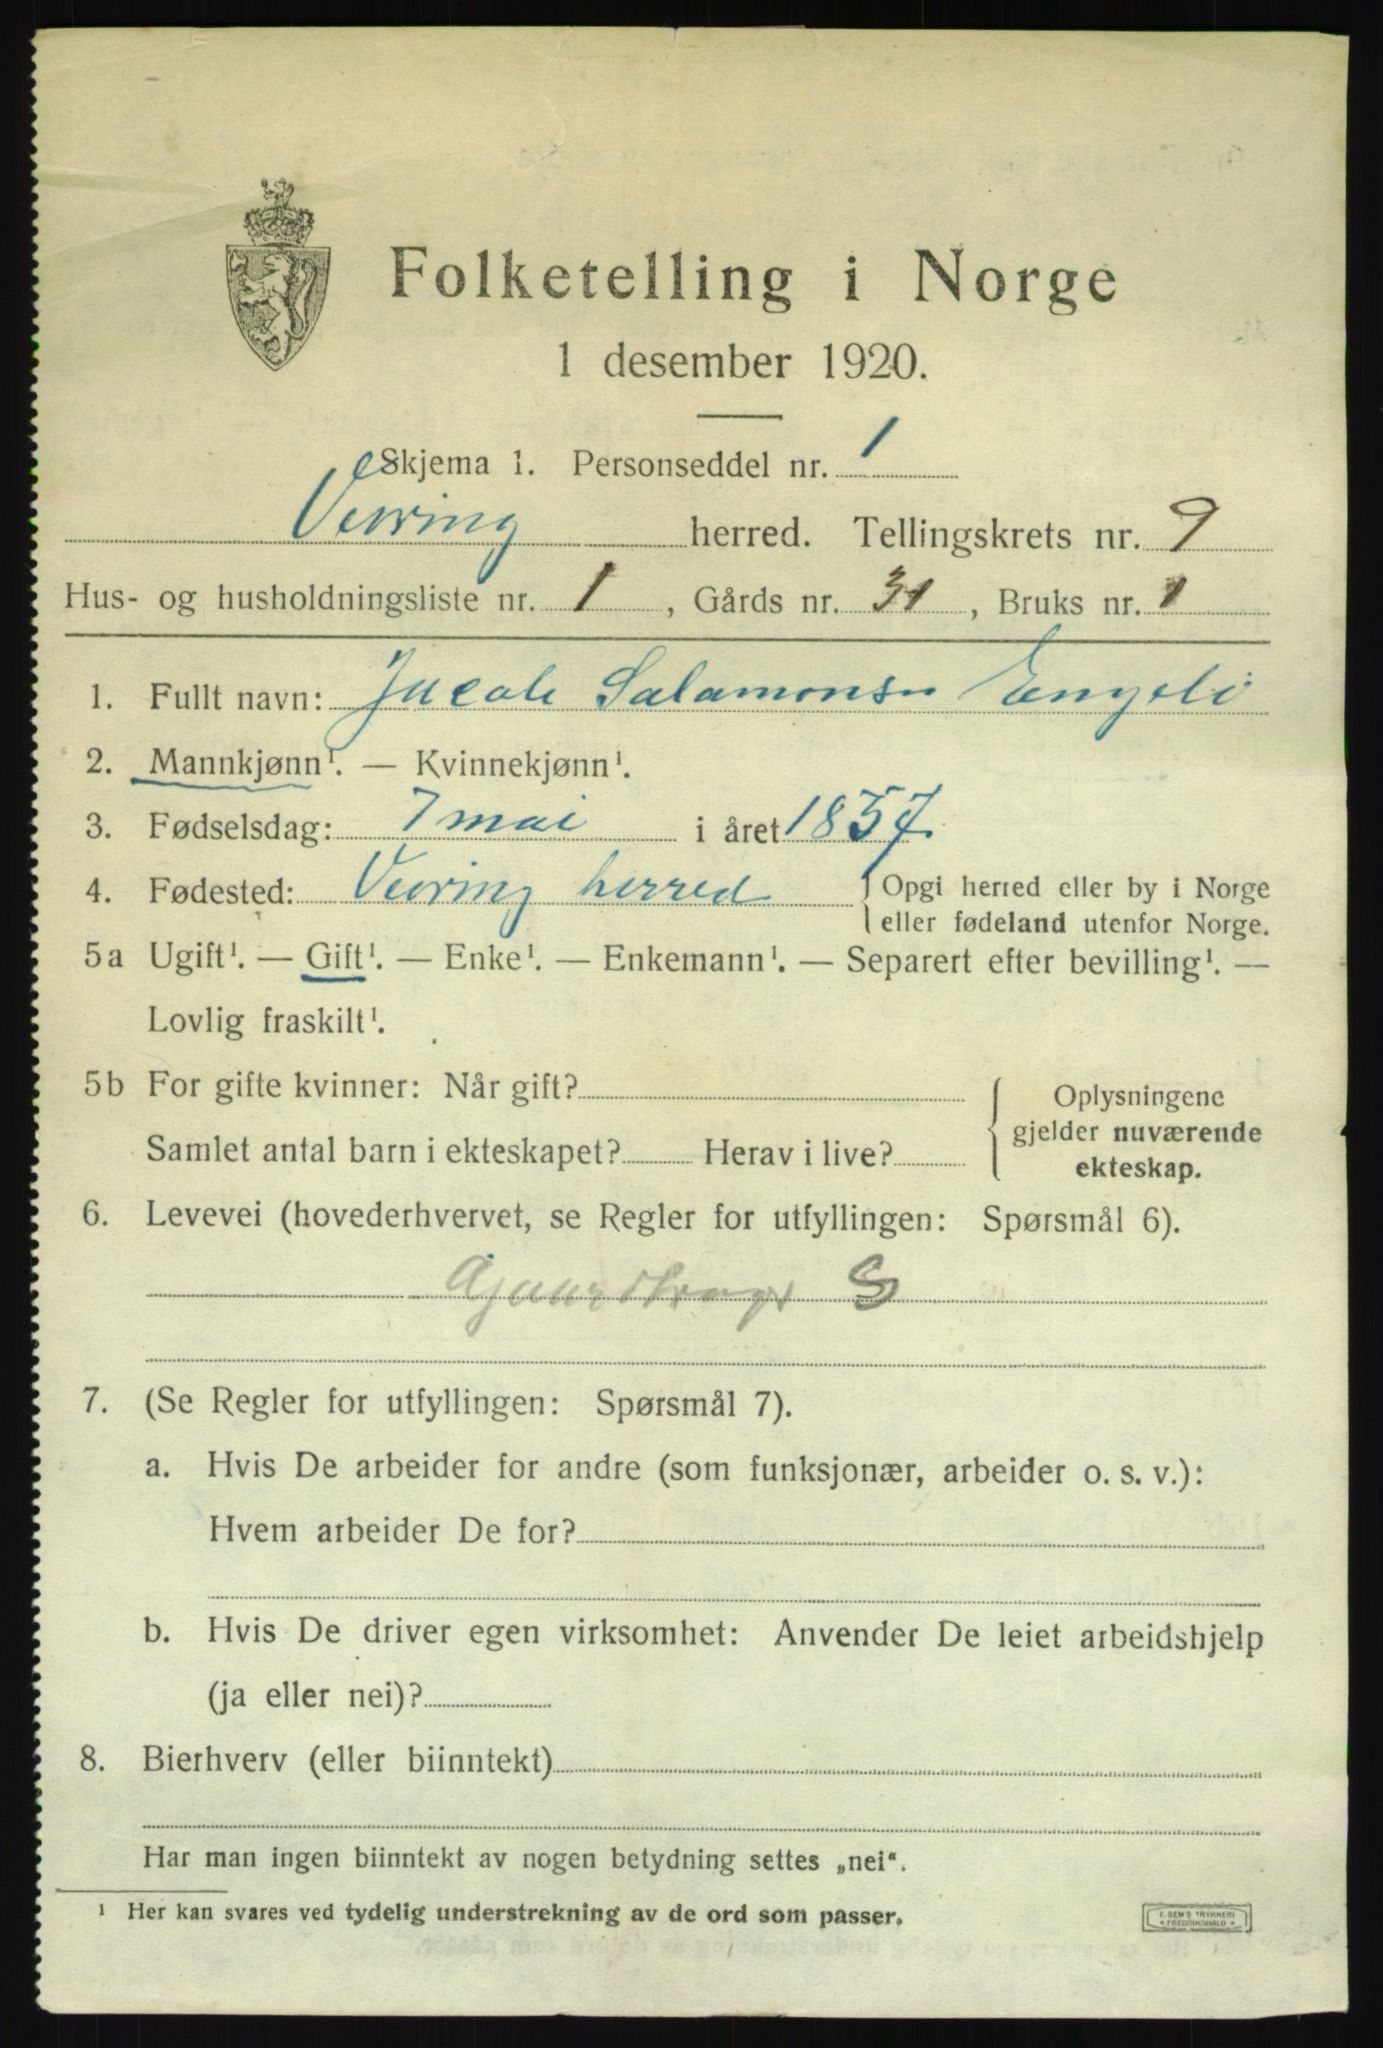 Folketelling i Norge
1 desember 1920.
Skjema 1. Personseddel nr. 1
Vevring herred. Tellingskrets nr. 9
Hus- og husholdningsliste nr. 1, Gårds nr. 31, Bruks nr. 1
1. Fullt navn: Jacob Salamonsen Engebø
2. Mannkjønn¹. — Kvinnekjønn¹.
3. Fødselsdag: 7 mai i året 1857.
4. Fødested: Vevring herred {Opgi herred eller by i Norge
eller fødeland utenfor Norge.
5a Ugift¹. — Gift¹. — Enke¹. — Enkemann¹. — Separert efter bevilling¹. —
Lovlig fraskilt¹.
5b For gifte kvinner: Når gift?
Samlet antal barn i ekteskapet? Herav i live?
Oplysningene
gjelder nuværende
ekteskap.
6. Levevei (hovederhvervet, se Regler for utfyllingen: Spørsmål 6).
S
7. (Se Regler for utfyllingen: Spørsmål 7).
a. Hvis De arbeider for andre (som funksjonær, arbeider o. s. v.):
Hvem arbeider De for?
b. Hvis De driver egen virksomhet: Anvender De leiet arbeidshjelp
(ja eller nei)?
8. Bierhverv (eller biinntekt)
Har man ingen biinntekt av nogen betydning settes „nei“.
¹ Her kan svares ved tydelig understrekning av de ord som passer.
E. SEM'S TRYKKERI
FREDRIKSHALD